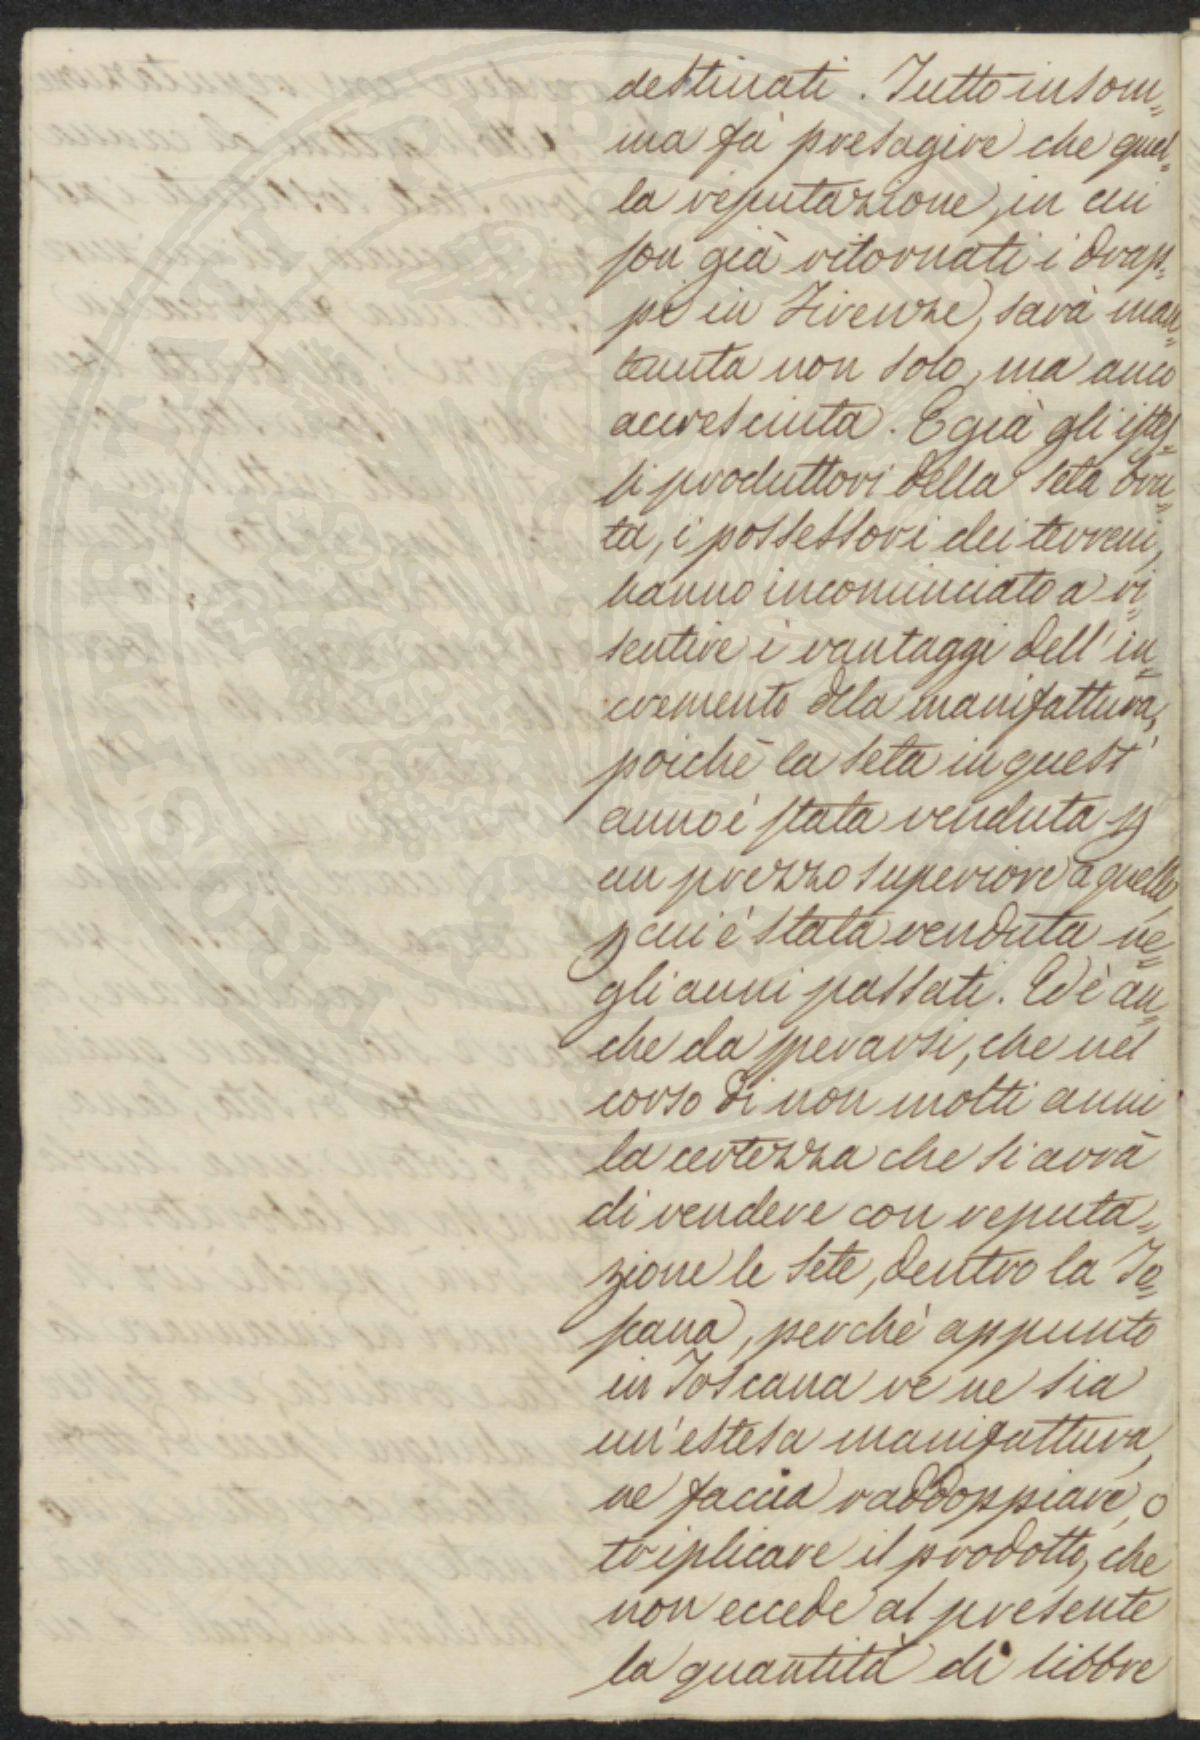 destinati. Tutto in som=
ma fà presagire che quel=
la reputazione, in cui
son già ritornati i drap=
pi in Firenze, sarà man=
tenuta non solo, ma anco
accresciuta. E già gli istes=
si produttori della seta bru=
ta, i possessori dei terreni,
hanno incominciato a ri=
sentire i vantaggi dell'in=
cremento della manifattura,
poichè la seta in quest'
anno è stata venduta p
un prezzo superiore a quello,
p cui è stata venduta ne=
gli anni passati. Ed è an=
che da sperarsi, che nel
corso di non molti anni
la certezza che si avrà
di vendere con reputa=
zione le sete, dentro la To=
scana, perchè appunto
in Toscana ve ne sia
un'estesa manifattura,
ne faccia raddoppiare, o
triplicare il prodotto, che
non eccede al presente
la quantità di libbre
PROSPERITATI PUBLICAE